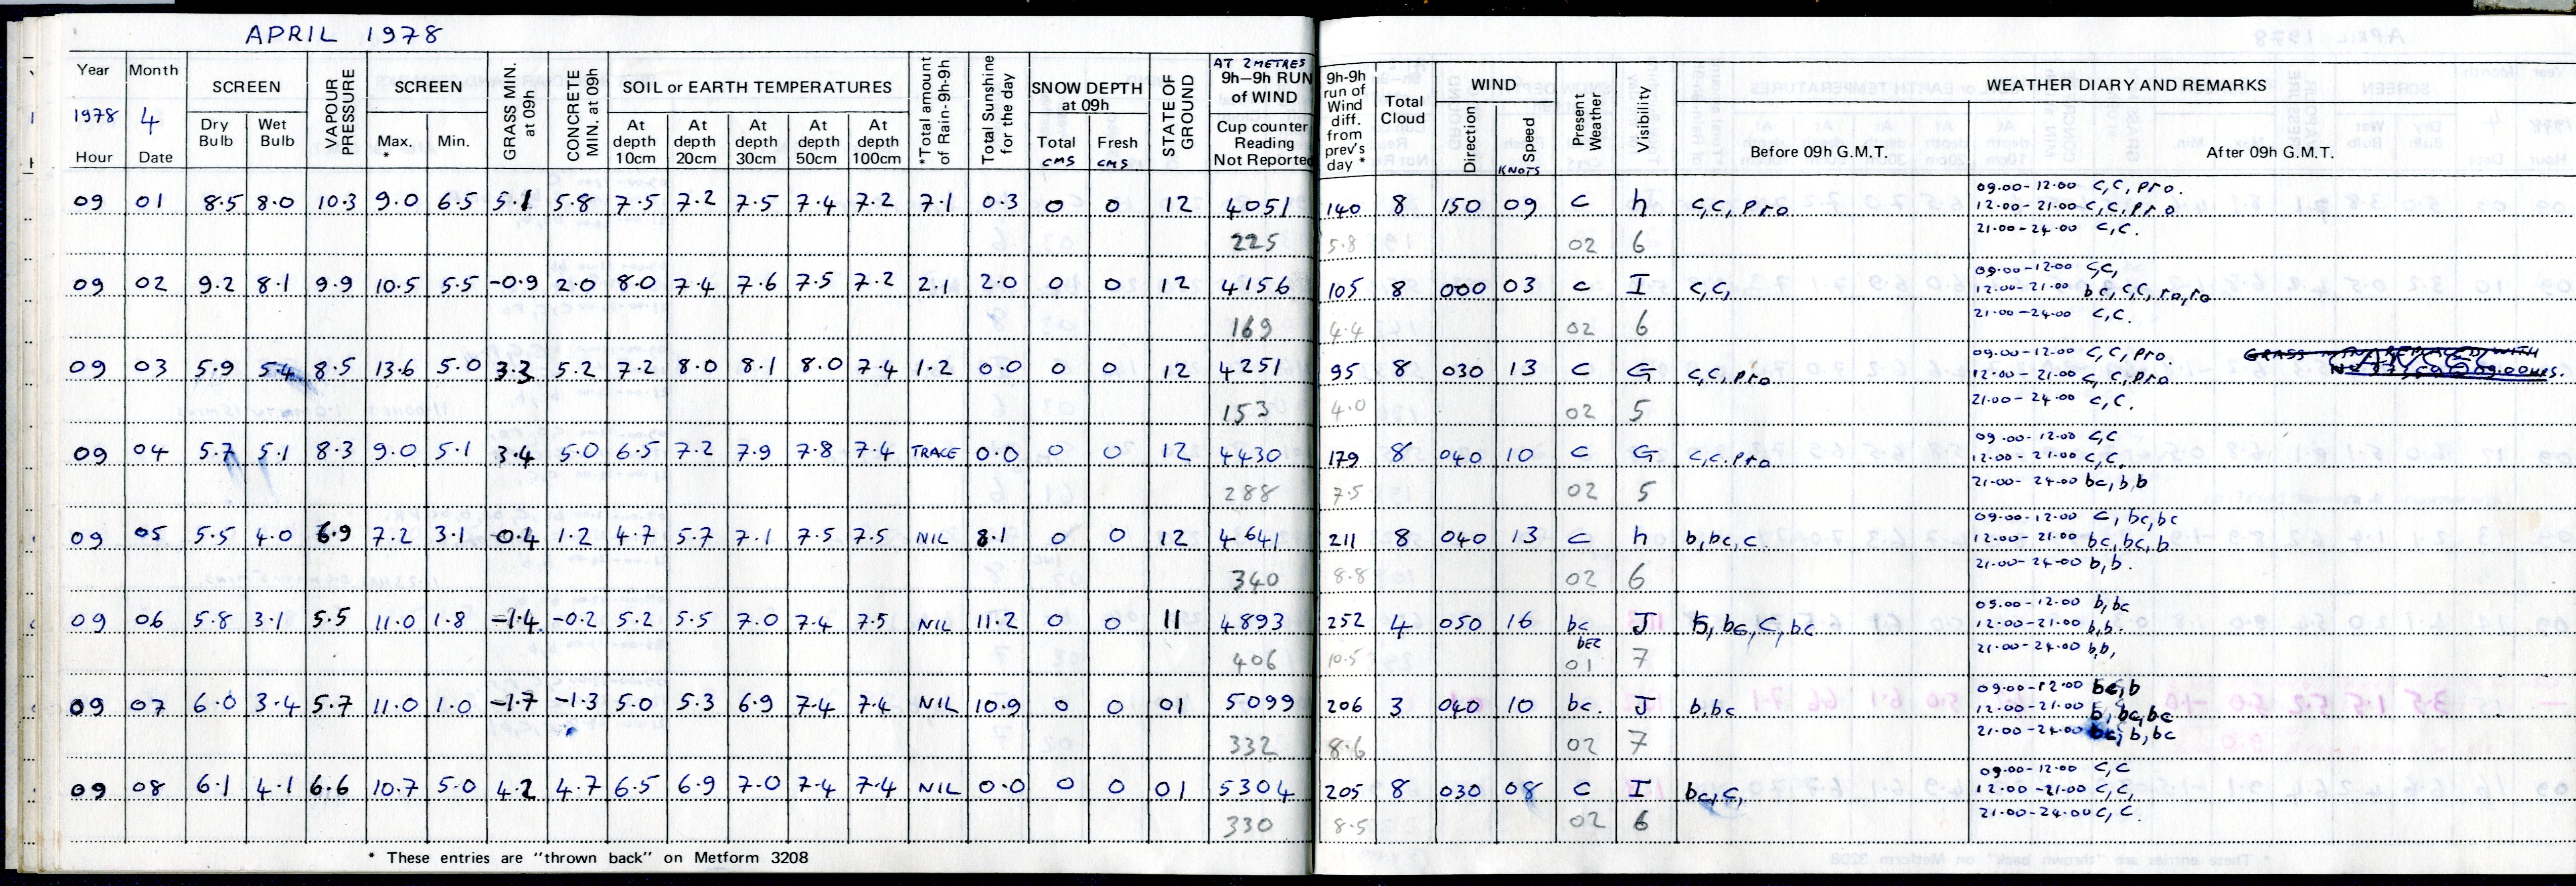 APRIL 1978
Year Month SCREEN VAPOUR PRESSURE SCREEN GRASS MIN. at 09h CONCRETE MIN. at 09h SOIL or EARTH TEMPERATURES *Total amount of Rain-9h-9h Total Sunshine for the day SNOW DEPTH at 09h STATE OF GROUND AT 2 METRES 9h-9h RUN of WIND 9h-9h run of Wind diff. from prev's day * Total Cloud WIND Present Weather Visibility WEATHER DIARY AND REMARKS
1978 4 Dry Bulb Wet Bulb Max. * Min. At depth 10cm At depth 20cm At depth 30cm At depth 50cm At depth 100cm Total CMS Fresh CMS Cup counter Reading Not Reported Direction Speed KNOTS Before 09h G.M.T. After 09h G.M.T.
Hour Date
09 01 8.5 8.0 10.3 9.0 6.5 5.1 5.8 7.5 7.2 7.5 7.4 7.2 7.1 0.3 0 0 12 4051 140 8 150 09 c h c,c, pro
09.00-12.00 c,c, pro.
12.00-21.00 c,c, pro
21.00-24.00 c,c.
225 5.8 02 6
09 02 9.2 8.1 9.9 10.5 5.5 -0.9 2.0 8.0 7.4 7.6 7.5 7.2 2.1 2.0 0 0 12 4156 105 8 000 03 c I c,c,
09.00-12.00 c,c,
12.00-21.00 bc, c,c, ro,ro
21.00-24.00 c,c.
169 4.4 02 6
09 03 5.9 5.4 8.5 13.6 5.0 3.3 5.2 7.2 8.0 8.1 8.0 7.4 1.2 0.0 0 0 12 4251 95 8 030 13 c G c,c, pro
09.00-12.00 c,c, pro.
12.00-21.00 c, c, pro
21.00-24.00 c,c.
GRASS MIN REPLACED WITH
CANCEL
09.00HRS.
153 4.0 02 5
09 04 5.7 5.1 8.3 9.0 5.1 3.4 5.0 6.5 7.2 7.9 7.8 7.4 TRACE 0.0 0 0 12 4430 179 8 040 10 c G c,c. pro
09.00-12.00 c,c
12.00-21.00 c,c,
21.00-24.00 bc, b,b
288 7.5 02 5
09 05 5.5 4.0 6.9 7.2 3.1 -0.4 1.2 4.7 5.7 7.1 7.5 7.5 NIL 8.1 0 0 12 4641 211 8 040 13 c h b, bc, c.
09.00-12.00 c, bc,bc
12.00-21.00 bc, bc, b
21.00-24.00 b,b.
340 8.8 02 6
09 06 5.8 3.1 5.5 11.0 1.8 -1.4 -0.2 5.2 5.5 7.0 7.4 7.5 NIL 11.2 0 0 11 4893 252 4 050 16 bc J b, bc, c, bc
09.00-12.00 b, bc
12.00-21.00 b,b.
21.00-24.00 b,b,
406 10.5 01 7
09 07 6.0 3.4 5.7 11.0 1.0 -1.7 -1.3 5.0 5.3 6.9 7.4 7.4 NIL 10.9 0 0 01 5099 206 3 040 10 bc. J b, bc
09.00-12.00 bc, b
12.00-21.00 b, bc,bc
21.00-24.00 bc, b, bc
332 8.6 02 7
09 08 6.1 4.1 6.6 10.7 5.0 4.2 4.7 6.5 6.9 7.0 7.4 7.4 NIL 0.0 0 0 01 5304 205 8 030 08 c I bc, c,
09.00-12.00 c, c
12.00-21.00 c, c,
21.00-24.00 c, c.
330 8.5 02 6
* These entries are "thrown back" on Metform 3208